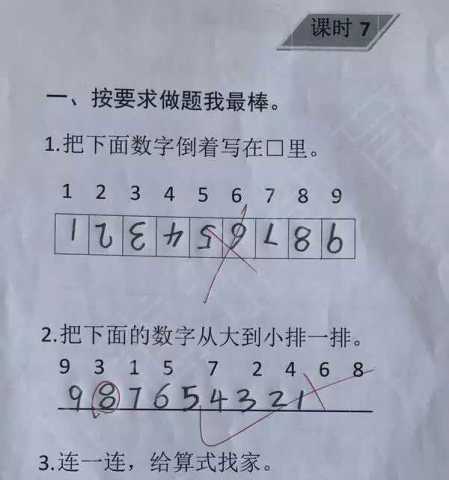 课时 7
一、按要求做题我最棒。
1.把下面数字倒着写在□里。
1 2 3 4 5 6 7 8 9
1 2 3 4 5 6 7 8 9
2.把下面的数字从大到小排一排。
9 3 1 5 7 2 4 6 8
9 8 7 6 5 4 3 2 1
3.连一连，给算式找家。